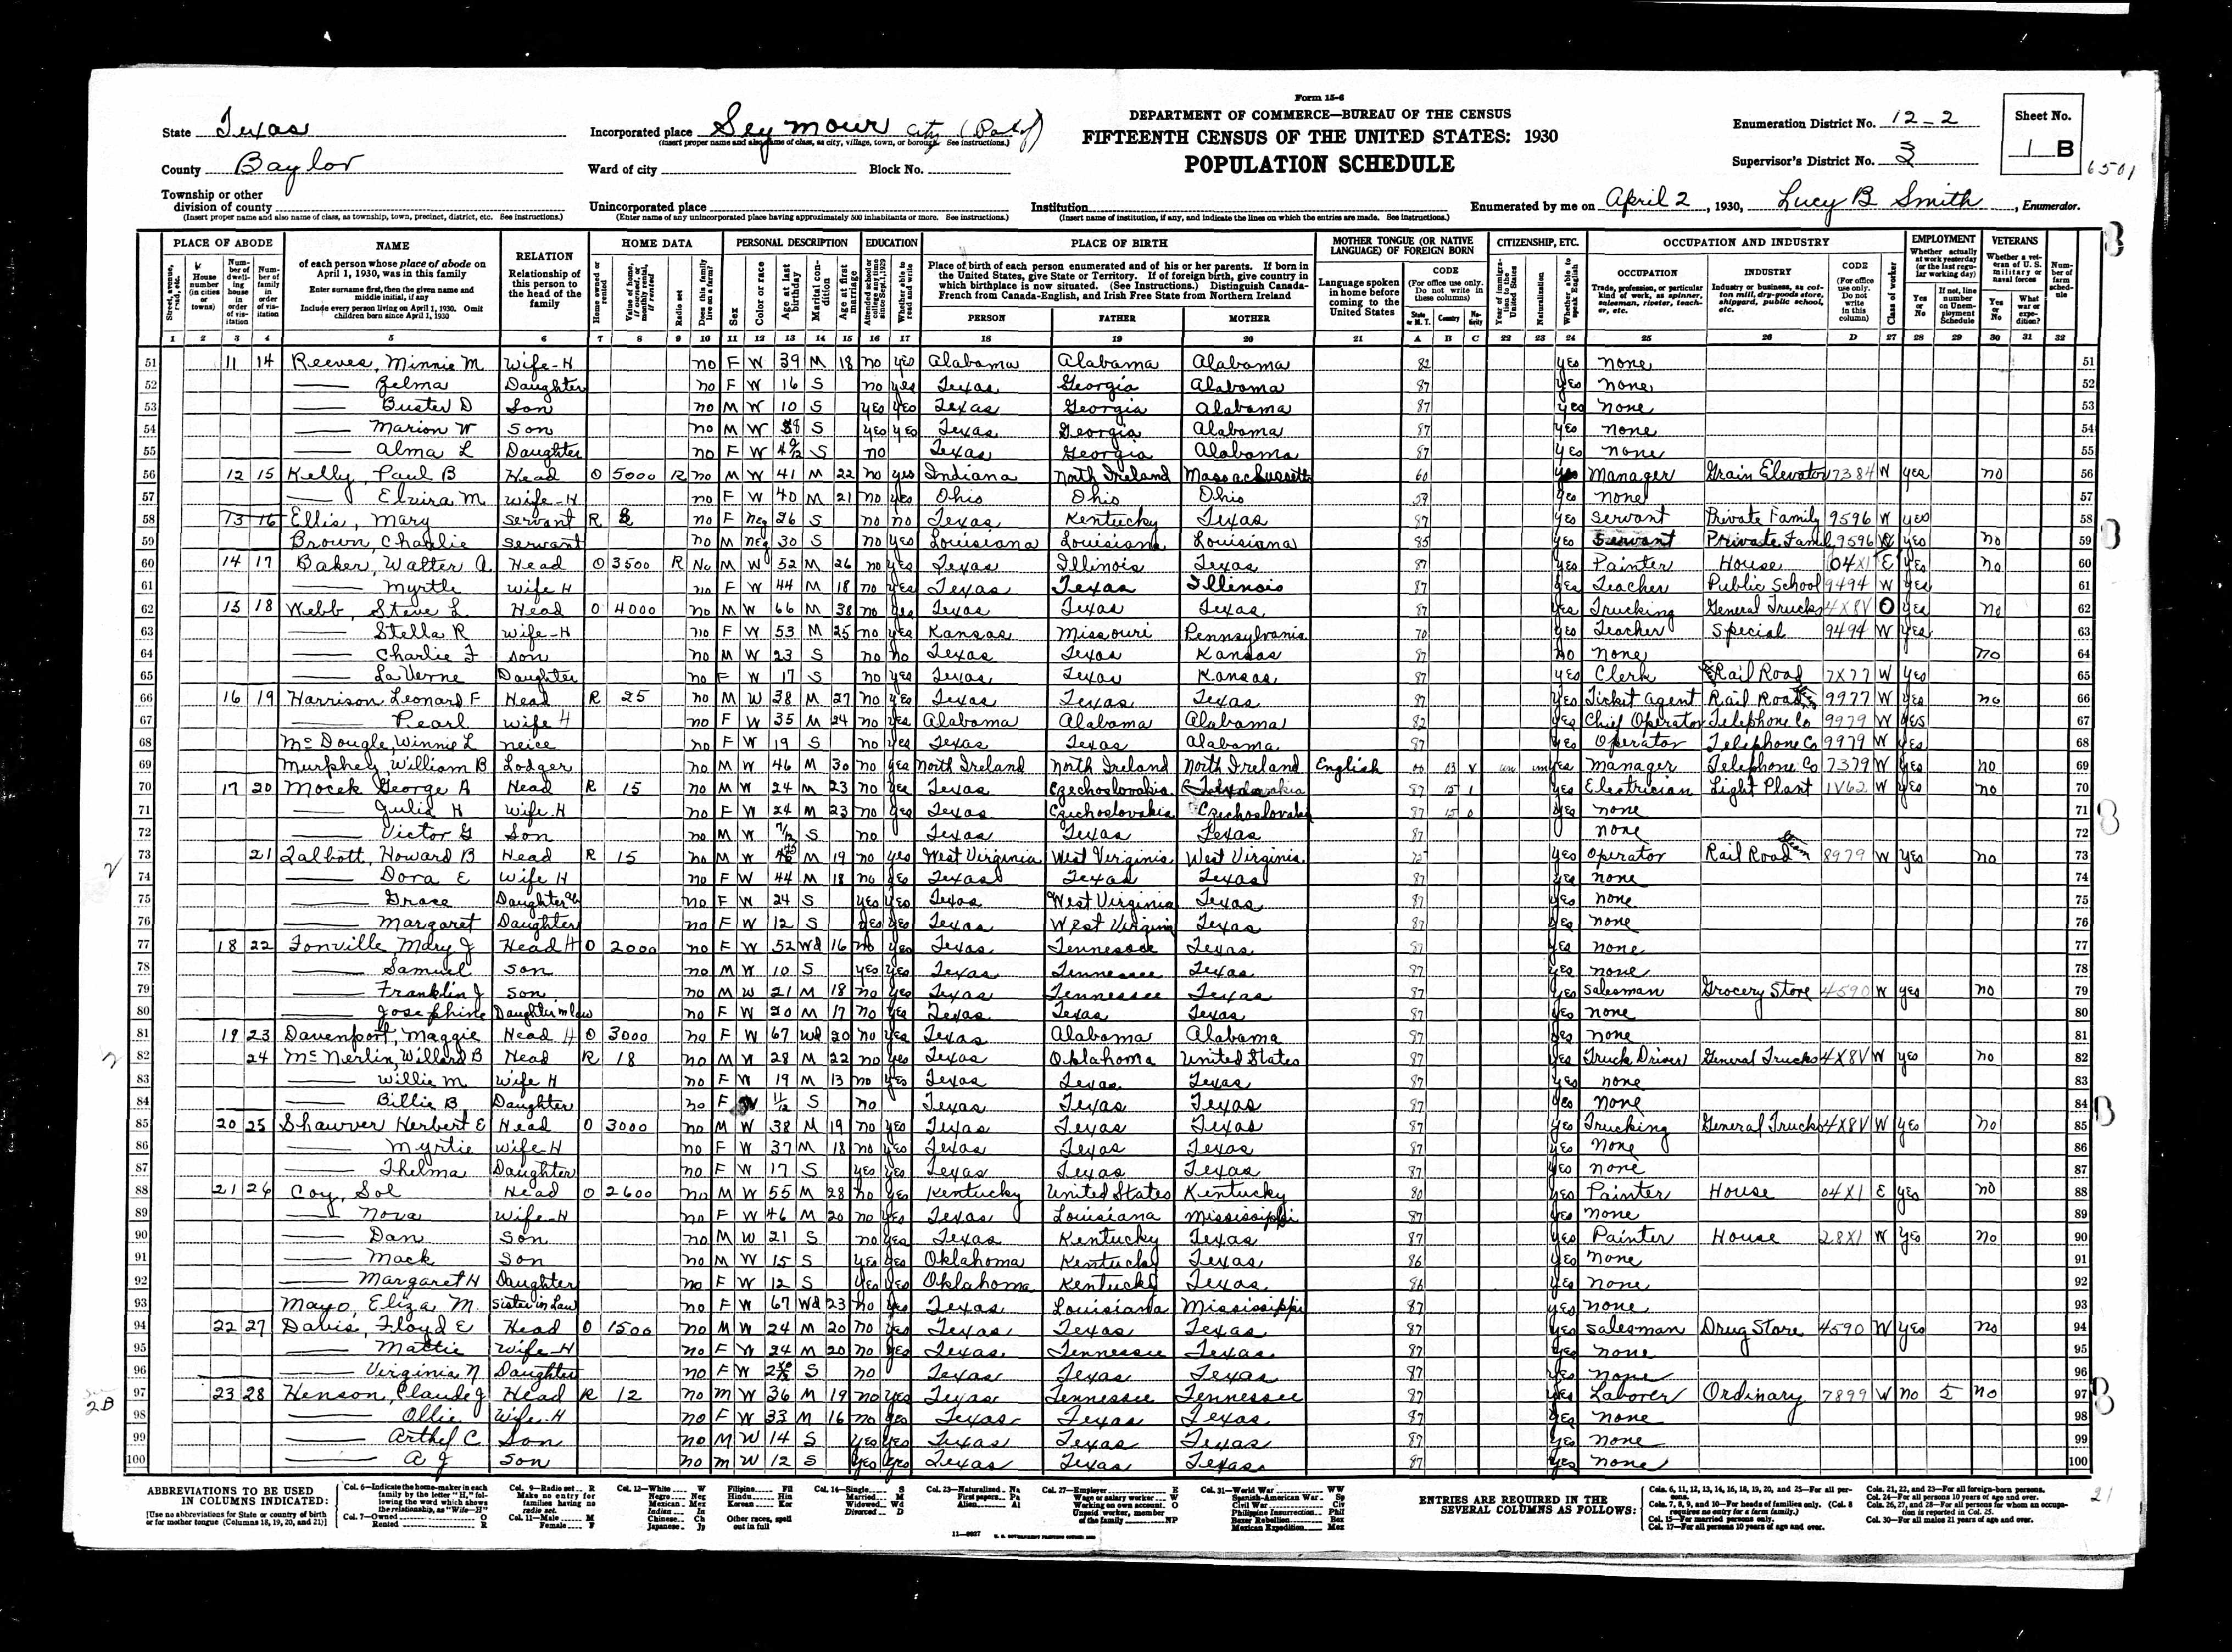 Form 15-6
DEPARTMENT OF COMMERCE—BUREAU OF THE CENSUS
FIFTEENTH CENSUS OF THE UNITED STATES: 1930
POPULATION SCHEDULE
State Texas
County Baylor
Township or other division of county
(Insert proper name and also name of class, as township, town, precinct, district, etc. See instructions.)
Incorporated place Seymour city (Part of)
(Insert proper name and also name of class, as city, village, town, or borough. See instructions.)
Ward of city Block No.
Unincorporated place
(Enter name of any unincorporated place having approximately 500 inhabitants or more. See instructions.)
Institution
(Insert name of institution, if any, and indicate the lines on which the entries are made. See instructions.)
Enumeration District No. 12-2
Supervisor's District No. 3
Sheet No. 1 B
6501
Enumerated by me on April 2, 1930, Lucy B Smith, Enumerator.
PLACE OF ABODE NAME RELATION HOME DATA PERSONAL DESCRIPTION EDUCATION PLACE OF BIRTH MOTHER TONGUE (OR NATIVE LANGUAGE) OF FOREIGN BORN CITIZENSHIP, ETC. OCCUPATION AND INDUSTRY EMPLOYMENT VETERANS
1 2 3 4 5 6 7 8 9 10 11 12 13 14 15 16 17 18 19 20 21 A B C 22 23 24 25 26 D 27 28 29 30 31 32
51 11 14 Reeves, Minnie M Wife-H no F W 39 M 18 no yes Alabama Alabama Alabama 82 yes none 51
52 Zelma Daughter no F W 16 S no yes Texas Georgia Alabama 87 yes none 52
53 Buster D Son no M W 10 S yes yes Texas Georgia Alabama 87 yes none 53
54 Marion W Son no M W 8 S yes yes Texas Georgia Alabama 87 yes none 54
55 Alma L Daughter no F W S no Texas Georgia Alabama 87 yes none 55
56 12 15 Kelly, Paul B Head O 5000 R no M W 41 M 22 no yes Indiana North Ireland Massachusetts 60 yes Manager Grain Elevator 7384 W yes no 56
57 Elvira M Wife-H no F W 40 M 21 no yes Ohio Ohio Ohio 59 yes none 57
58 13 16 Ellis, Mary Servant R no F Neg 26 S no no Texas Kentucky Texas 87 yes Servant Private Family 9596 W yes 58
59 Brown, Charlie Servant no M Neg 30 S no yes Louisiana Louisiana Louisiana 85 yes Servant Private Family 9596 W yes no 59
60 14 17 Baker, Walter A. Head O 3500 R No M W 52 M 26 no yes Texas Illinois Texas 87 yes Painter House 04X1 E yes no 60
61 Myrtle Wife H no F W 44 M 18 no yes Texas Texas Illinois 87 yes Teacher Public School 9494 W yes 61
62 15 18 Webb, Steve L Head O 4000 no M W 66 M 38 no yes Texas Texas Texas 87 yes Trucking General Trucks 4X8V O yes no 62
63 Stella R Wife-H no F W 53 M 25 no yes Kansas Missouri Pennsylvania 70 yes Teacher Special 9494 W yes 63
64 Charlie F Son no M W 23 S no no Texas Texas Kansas 87 no none no 64
65 LaVerne Daughter no F W 17 S no yes Texas Texas Kansas 87 yes Clerk Rail Road 7X77 W yes 65
66 16 19 Harrison Leonard F Head R 25 no M W 38 M 27 no yes Texas Texas Texas 87 yes Ticket Agent Rail Road 9977 W yes no 66
67 Pearl Wife H no F W 35 M 24 no yes Alabama Alabama Alabama 82 yes Chief Operator Telephone Co 9979 W yes 67
68 McDougle, Winnie L neice no F W 19 S no yes Texas Texas Alabama 87 yes Operator Telephone Co 9979 W yes 68
69 Murphey, William B Lodger no M W 46 M 30 no yes North Ireland North Ireland North Ireland English 00 13 V un un yes Manager Telephone Co 7379 W yes no 69
70 17 20 Mocek George A Head R 15 no M W 24 M 23 no yes Texas Czechoslovakia 87 15 1 yes Electrician Light Plant 1V62 W yes no 70
71 Julia H Wife H no F W 24 M 23 no yes Texas Czechoslovakia Czechoslovakia 87 15 0 yes none 71
72 Victor G Son no M W 7/12 S no Texas Texas Texas 87 none 72
73 21 Talbott, Howard B Head R 15 no M W 45 M 19 no yes West Virginia West Virginia West Virginia yes Operator Rail Road Steam 8979 W yes no 73
74 Dora E Wife H no F W 44 M 18 no yes Texas Texas Texas 87 yes none 74
75 Grace Daughter no F W 24 S yes yes Texas West Virginia Texas 87 yes none 75
76 Margaret Daughter no F W 12 S yes yes Texas West Virginia Texas 87 yes none 76
77 18 22 Fonville Mary J Head H O 2000 no F W 52 Wd 16 no yes Texas Tennessee Texas 87 yes none 77
78 Samuel Son no M W 10 S yes yes Texas Tennessee Texas 87 yes none 78
79 Franklin J Son no M W 21 M 18 no yes Texas Tennessee Texas 87 yes Salesman Grocery Store 4590 W yes no 79
80 Josephine Daughter in law no F W 20 M 17 no yes Texas Texas Texas 87 yes none 80
81 19 23 Davenport, Maggie Head H O 3000 no F W 67 Wd 20 no yes Texas Alabama Alabama 87 yes none 81
82 24 McNerlin, Willard B Head R 18 no M W 28 M 22 no yes Texas Oklahoma United States 87 yes Truck Driver General Trucks 4X8V W yes no 82
83 Willie M Wife H no F W 19 M 13 no yes Texas Texas Texas 87 yes none 83
84 Billie B Daughter no F W 11/12 S no Texas Texas Texas 87 yes none 84
85 20 25 Shawver Herbert E Head O 3000 no M W 38 M 19 no yes Texas Texas Texas 87 yes Trucking General Trucks 4X8V W yes no 85
86 Myrtie Wife-H no F W 37 M 18 no yes Texas Texas Texas 87 yes None 86
87 Thelma Daughter no F W 17 S yes yes Texas Texas Texas 87 yes none 87
88 21 26 Coy, Sol Head O 2600 no M W 55 M 28 no yes Kentucky United States Kentucky 80 yes Painter House 04X1 E yes no 88
89 Nova Wife-H no F W 46 M 20 no yes Texas Louisiana Mississippi 87 yes none 89
90 Dan Son no M W 21 S no yes Texas Kentucky Texas 87 yes Painter House 28X1 W yes no 90
91 Mack Son no M W 15 S yes yes Oklahoma Kentucky Texas 86 yes None 91
92 Margaret H Daughter no F W 12 S yes yes Oklahoma Kentucky Texas 86 yes none 92
93 Mayo, Eliza M. Sister in Law no F W 67 Wd 23 no yes Texas Louisiana Mississippi 87 yes none 93
94 22 27 Davis, Floyd E Head O 1500 no M W 24 M 20 no yes Texas Texas Texas 87 yes Salesman Drug Store 4590 W yes no 94
95 Mattie Wife-H no F W 24 M 20 no yes Texas Tennessee Texas 87 yes none 95
96 Virginia N Daughter no F W S no Texas Texas Texas 87 yes none 96
97 23 28 Henson, Claude J Head R 12 no M W 36 M 19 no yes Texas Tennessee Tennessee 87 yes Laborer Ordinary 7899 W no 5 no 97
98 Ollie Wife-H no F W 33 M 16 no yes Texas Texas Texas 87 yes none 98
99 Arthel C Son no M W 14 S yes yes Texas Texas Texas 87 yes none 99
100 A J Son no M W 12 S yes yes Texas Texas Texas 87 yes none 100
2B
ABBREVIATIONS TO BE USED IN COLUMNS INDICATED:
[Use no abbreviations for State or country of birth or for mother tongue (Columns 18, 19, 20, and 21)]
ENTRIES ARE REQUIRED IN THE SEVERAL COLUMNS AS FOLLOWS:
21